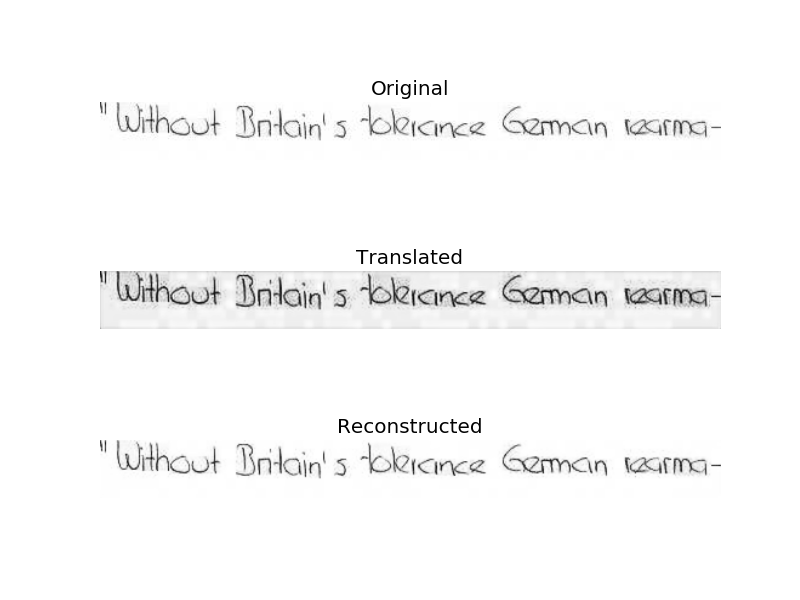 Original
"Without Britain's tolerance German rearma-
Translated
"Without Britain's tolerance German rearma-
Reconstructed
"Without Britain's tolerance German rearma-